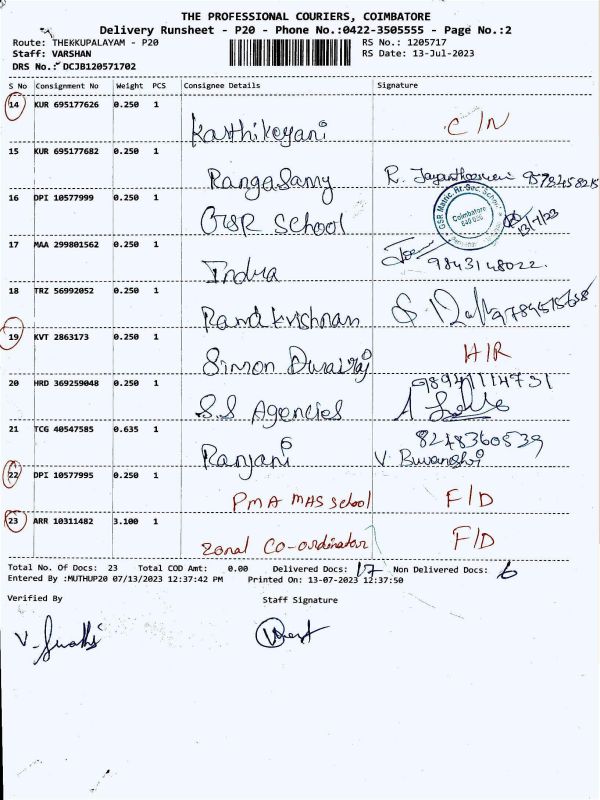 THE PROFESSIONAL COURIERS, COIMBATORE
Delivery Runsheet - P20 - Phone No.:0422-3505555 - Page No.:2
Route: THEKKUPALAYAM - P20 RS No.: 1205717
Staff: VARSHAN RS Date: 13-Jul-2023
DRS No.: DCJB120571702
S No Consignment No Weight PCS Consignee Details Signature
14 KUR 695177626 0.250 1
Karthikeyani C/N
15 KUR 695177682 0.250 1
Rangasamy R.
16 DPI 10577999 0.250 1
GSR School GSR Matric. Hr. Sec. School Coimbatore 13/7/23
17 MAA 299801562 0.250 1
Indra 9843148022.
18 TRZ 56992052 0.250 1
Ramakrishnan 9789515658
19 KVT 2863173 0.250 1
Simon Durairaj H/R
20 HRD 369259048 0.250 1
S.S Agencies
21 TCG 40547585 0.635 1 8248360539
Ranjani V. Buvaneshri
22 DPI 10577995 0.250 1
PMA MAS school F/D
23 ARR 10311482 3.100 1
zonal Co-ordinator F/D
Total No. Of Docs: 23 Total COD Amt: 0.00 Delivered Docs: 17 Non Delivered Docs: 6
Entered By :MUTHUP20 07/13/2023 12:37:42 PM Printed On: 13-07-2023 12:37:50
Verified By Staff Signature